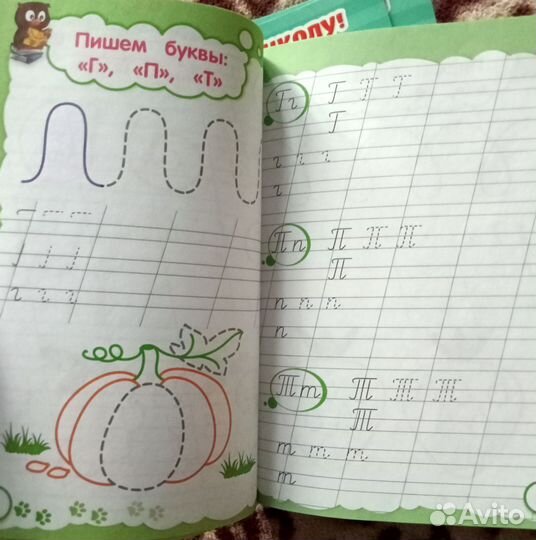 Пишем буквы:
«Г», «П», «Т»
школу!
Гг Г Г Г
Г
г г г
г
Пп П П П
П
п п п
п
Тт Т Т Т
Т
т т т
т
г г г
Avito